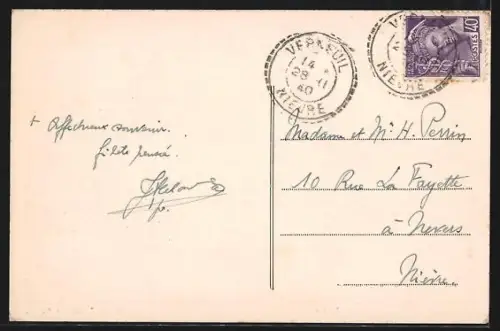 VERNEUIL
14
28 - 11
40
NIEVRE
NIEVRE
POSTES 40
+ Affectueux souvenir.
Madame et Mr H. Perrin
10 Rue La Fayette
à Nevers
Nièvre